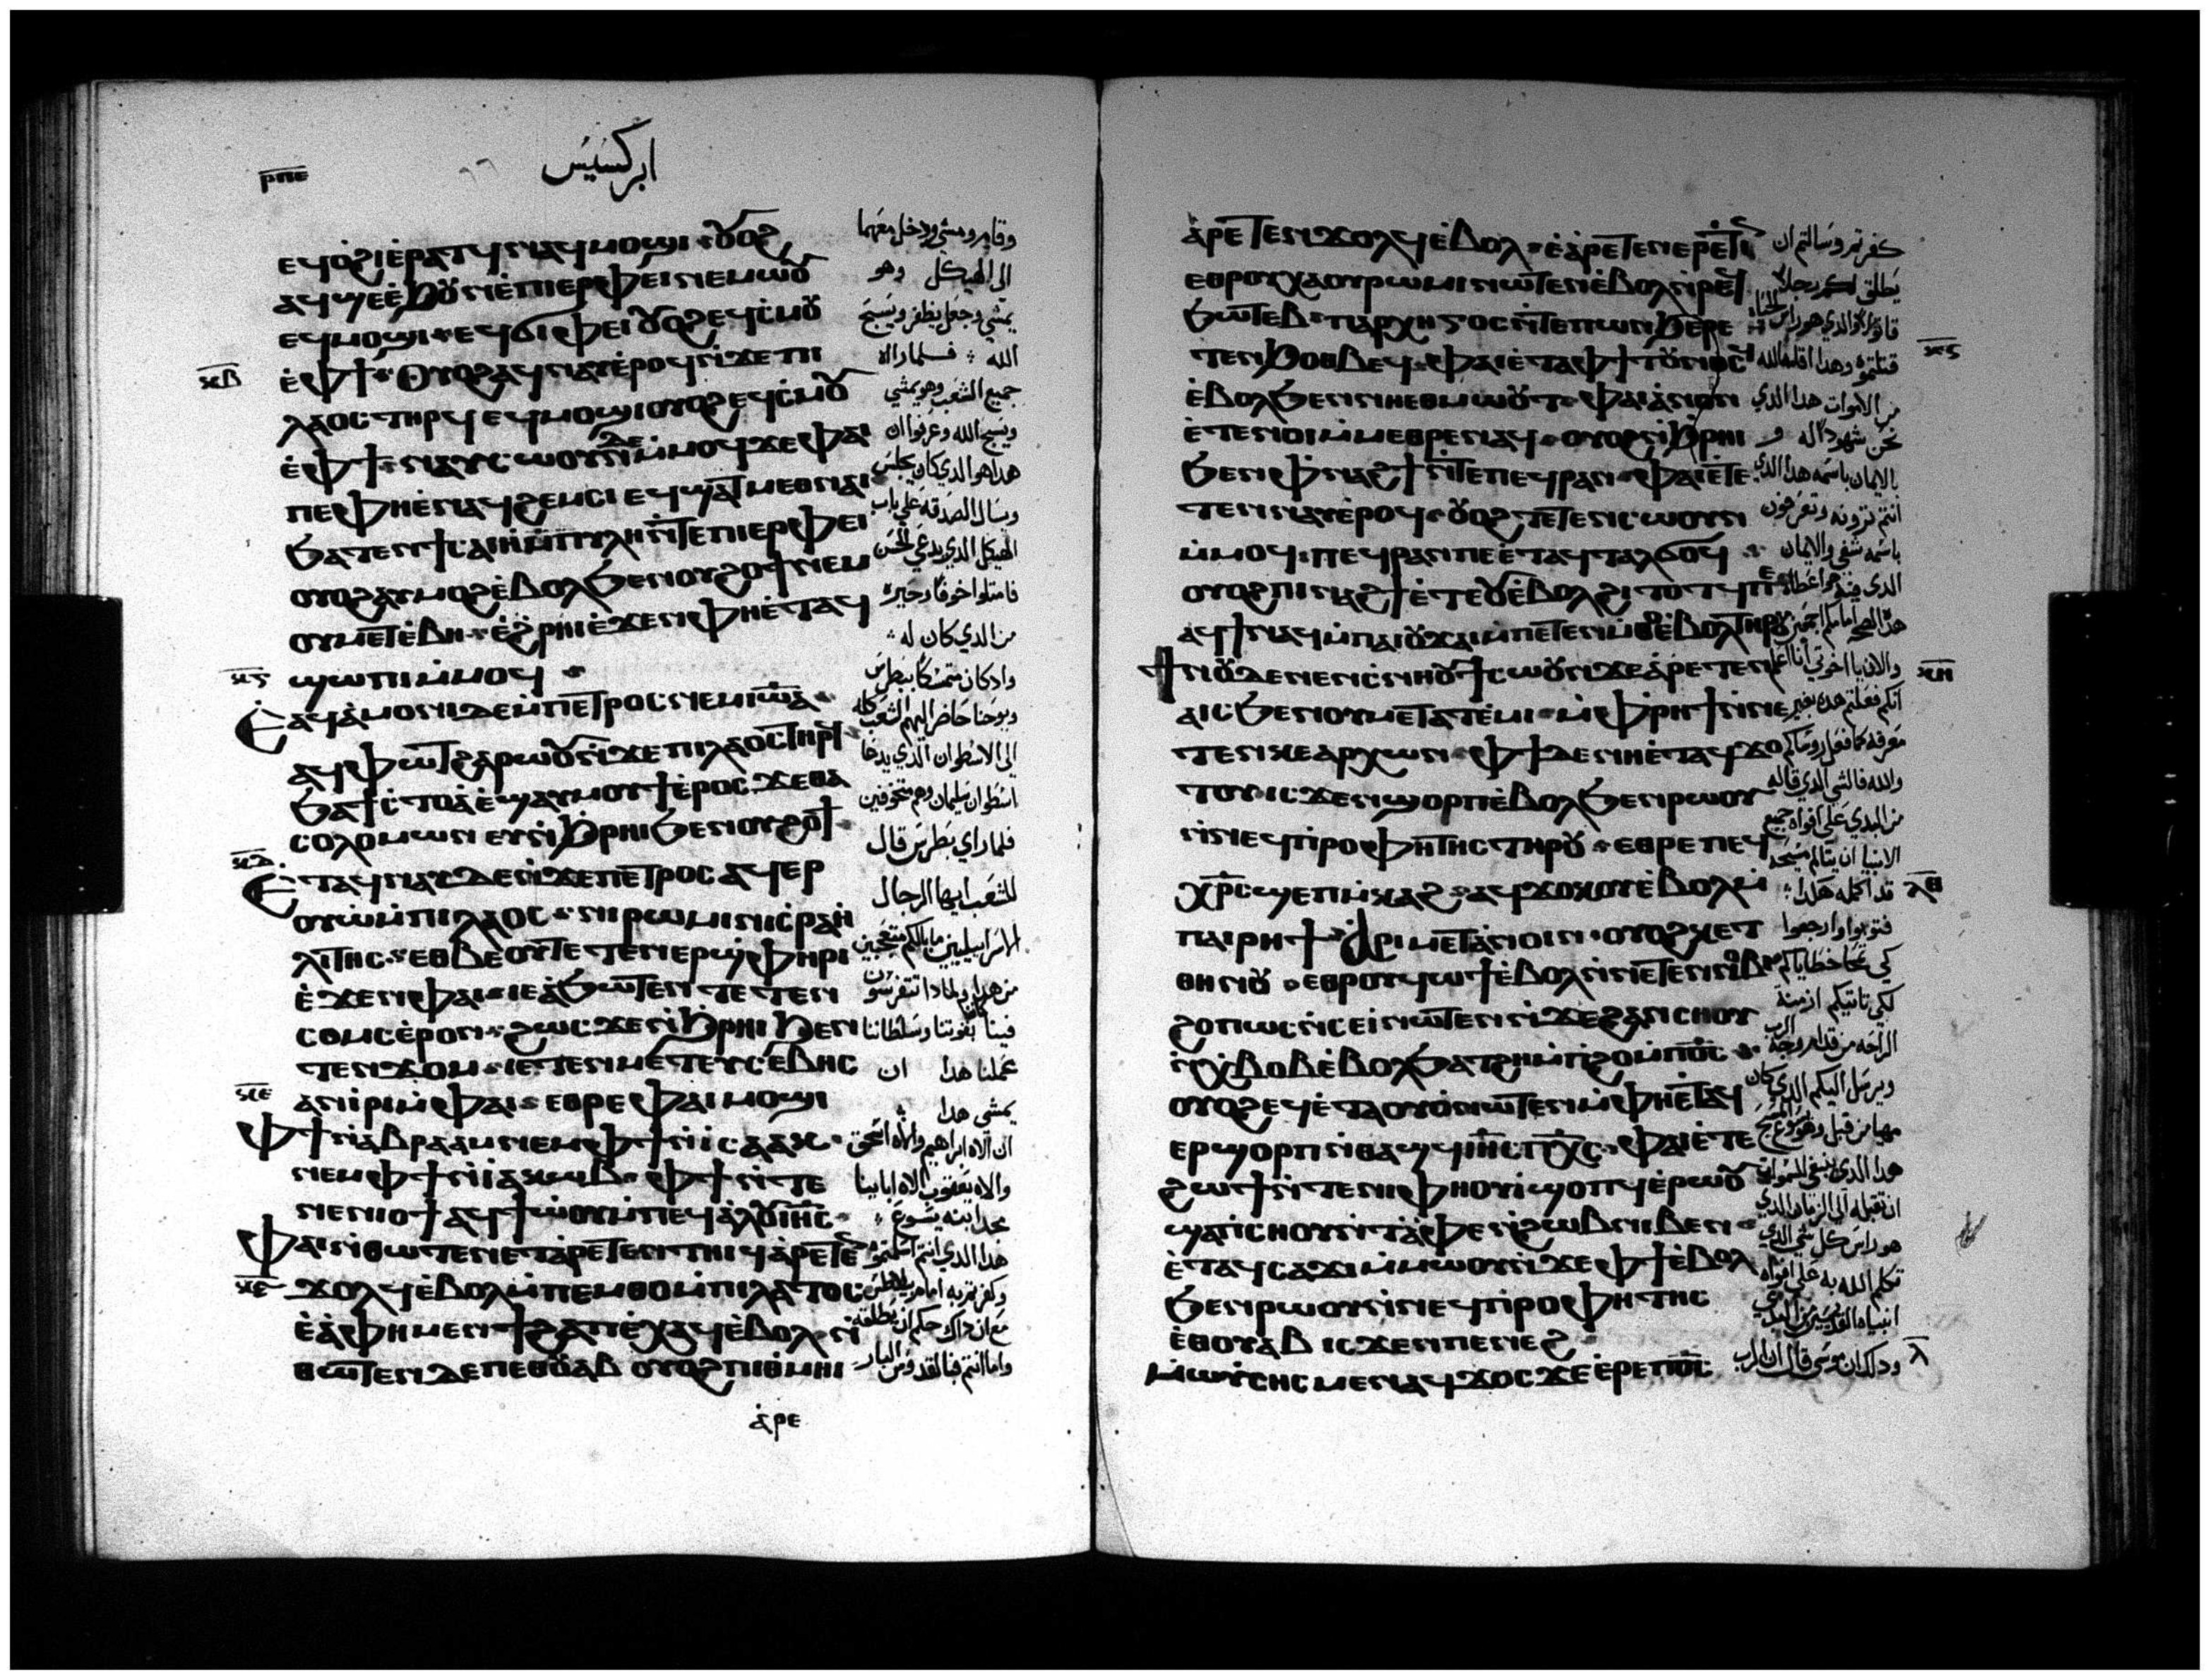 ⲣⲡⲉ
ابركسيس
ⲉϥⲟ̀ϩⲓⲉ̀ⲣⲁⲧϥ ⲛⲁϥⲙⲟϣⲓ ⲟⲩⲟϩ
ⲁϥϣⲉⲉ̀ϧⲟⲩⲛⲉ̀ⲡⲓⲉⲣⲫⲉⲓ ⲛⲉⲙⲱⲟⲩ
ⲉϥⲙⲟϣⲓ ⲉϥϭⲓⲫⲉⲓ ⲟⲩⲟϩ ⲉϥⲥ̀ⲙⲟⲩ
ⲉ̀ⲫϯ ⲟⲩⲟϩ ⲁϥⲛⲁⲩⲉ̀ⲣⲟϥ ⲛ̀ϫⲉⲡⲓ
ⲗⲁⲟⲥ ⲧⲏⲣϥ ⲉϥⲙⲟϣⲓ ⲟⲩⲟϩ ⲉϥⲥ̀ⲙⲟⲩ
ⲉ̀ⲫϯ ⲛⲁⲩⲥⲱⲟⲩⲛ ⲇⲉ ⲙ̀ⲙⲟϥ ϫⲉ ⲫⲁⲓ
ⲡⲉ ⲫⲏⲉ̀ⲛⲁϥϩⲉⲙⲥⲓ ⲉϥϣⲁⲧⲙⲉⲑⲛⲁⲓ
ϧⲁⲧⲉⲛ ϯⲥⲁⲓⲏ ⲙ̀ⲡⲩⲗⲏ ⲛ̀ⲧⲉ ⲡⲓⲉⲣⲫⲉⲓ
ⲟⲩⲟϩ ⲁⲩⲙⲟϩ ⲉ̀ⲃⲟⲗ ϧⲉⲛ ⲟⲩϩⲟϯ ⲛⲉⲙ
ⲟⲩⲙⲉⲧⲉ̀ⲃⲏ ⲉ̀ϩⲣⲏⲓ ⲉ̀ϫⲉⲛ ⲫⲏⲉ̀ⲧⲁϥ
ϣⲱⲡⲓ ⲙ̀ⲙⲟϥ
ⲉⲁϥⲁ̀ⲙⲟⲛⲓ ⲇⲉ ⲙ̀ⲡⲉⲧⲣⲟⲥ ⲛⲉⲙ ⲓⲱⲁ
ⲁϥⲫⲱⲧ ϩⲁⲣⲱⲟⲩ ⲛ̀ϫⲉ ⲡⲓⲗⲁⲟⲥ ⲧⲏⲣϥ
ϧⲁ ϯⲥⲧⲟⲁ̀ ⲉ̀ϣⲁⲩⲙⲟⲩϯ ⲉ̀ⲣⲟⲥ ϫⲉ ⲑⲁ
ⲥⲟⲗⲟⲙⲱⲛ ⲉⲩⲛ̀ϧⲣⲏⲓ ϧⲉⲛ ⲟⲩϩⲟϯ
ⲉⲧⲁϥⲛⲁⲩ ⲇⲉ ⲛ̀ϫⲉ ⲡⲉⲧⲣⲟⲥ ⲁϥⲉⲣ
ⲟⲩⲱ̀ ⲙ̀ⲡⲓⲗⲁⲟⲥ ⲛⲓⲣⲱⲙⲓ ⲛ̀ⲓⲥⲣⲁⲏ
ⲗⲓⲧⲏⲥ ⲉⲑⲃⲉⲟⲩ ⲧⲉⲧⲉⲛⲉⲣϣ̀ⲫⲏⲣⲓ
ⲉ̀ϫⲉⲛ ⲫⲁⲓ ⲓⲉ ⲁ̀ϧⲱⲧⲉⲛ ⲧⲉⲧⲉⲛ
ⲥⲟⲙⲥ ⲉ̀ⲣⲟⲛ ϩⲱⲥ ϫⲉ ⲛ̀ϧⲣⲏⲓ ϧⲉⲛ
ⲧⲉⲛϫⲟⲙ ⲓⲉ ⲧⲉⲛⲙⲉⲧⲉⲩⲥⲉⲃⲏⲥ
ⲁⲛⲓ̀ⲣⲓ ⲙ̀ⲫⲁⲓ ⲉⲑⲣⲉ ⲫⲁⲓ ⲙⲟϣⲓ
ⲫϯ ⲛ̀ⲁⲃⲣⲁⲁⲙ ⲛⲉⲙ ⲫϯ ⲛ̀ⲓⲥⲁⲁⲕ
ⲛⲉⲙ ⲫϯ ⲛ̀ⲓⲁⲕⲱⲃ ⲫϯ ⲛ̀ⲧⲉ
ⲛⲉⲛⲓⲟϯ ⲁϥϯⲱ̀ⲟⲩ ⲙ̀ⲡⲉϥⲁ̀ⲗⲟⲩ ⲓⲏⲥ
ⲫⲁⲓ ⲛ̀ⲑⲱⲧⲉⲛ ⲉⲧⲁ̀ⲣⲉⲧⲉⲛⲧⲏⲓϥ ⲁ̀ⲣⲉⲧⲉⲛ
ϫⲟⲗϥ ⲉ̀ⲃⲟⲗ ⲙ̀ⲡⲉⲙⲑⲟ ⲙ̀ⲡⲓⲗⲁⲧⲟⲥ
ⲉ̀ⲁ̀ⲫⲏ ⲙⲉⲛ ϯϩⲁⲡ ⲉ̀ⲭⲁϥ ⲉ̀ⲃⲟⲗ ⲛ̀
ⲑⲱⲧⲉⲛ ⲇⲉ ⲡⲉⲑⲟⲩⲁⲃ ⲟⲩⲟϩ ⲡⲓⲑ̀ⲙⲏⲓ
ⲁ̀ⲣⲉ
وقام ومشي ودخل معهما
الى الهيكل وهو
يمشي وجعل يطفر ويسبح
الله فلما راه
جميع الشعب وهو يمشي
ويسبح الله وعرفوا ان
هدا هو الدي كان يجلس
ويسال الصدقه على باب
الهيكل الدي يدعى الحسن
فامتلوا خوفا وحيره
من الدي كان له
واد كان متمسكا ببطرس
ويوحنا حاضر اليهم الشعب كله
الى الاسطوان الدي يدعا
اسطوان سليمان وهم متخوفين
فلما راي بطرس قال
للشعب ايها الرجال
الاسراييليين ما بالكم متعجبين
من هدا ولمادا تتفرسون
فينا كاننا بقوتنا وسلطاننا
عملنا هدا ان
يمشي هدا
ان الاه ابراهيم والاه اسحق
والاه يعقوب الاه اباينا
مجد ابنه يسوع
هدا الدي انتم اسلمتموه
وكفرتم به امام بيلاطس
مع ان داك حكم ان يطلقه
واما انتم فبالقدوس البار
ⲁ̀ⲣⲉⲧⲉⲛϫⲟⲗϥ ⲉ̀ⲃⲟⲗ ⲉ̀ⲁ̀ⲣⲉⲧⲉⲛⲉⲣⲉ̀ⲧⲓⲛ
ⲉⲑⲣⲟⲩⲭⲁ ⲟⲩⲣⲱⲙⲓ ⲛⲱⲧⲉⲛ ⲉ̀ⲃⲟⲗ ⲛ̀ⲣⲉϥ
ϧⲱⲧⲉⲃ ⲡⲁⲣⲭⲏⲅⲟⲥ ⲛ̀ⲧⲉ ⲡⲱⲛϧ ⲉⲣⲉ
ⲧⲉⲛϧⲟⲑⲃⲉϥ ⲫⲁⲓ ⲉ̀ⲧⲁⲫϯ ⲧⲟⲩⲛⲟⲥϥ
ⲉ̀ⲃⲟⲗ ϧⲉⲛ ⲛⲏⲉⲑⲙⲱⲟⲩⲧ ⲫⲁⲓ ⲁ̀ⲛⲟⲛ
ⲉ̀ⲧⲉⲛⲟⲓ ⲙ̀ⲙⲉⲑⲣⲉ ⲛⲁϥ ⲟⲩⲟϩ ⲛ̀ϧⲣⲏⲓ
ϧⲉⲛ ⲫⲛⲁϩϯ ⲛ̀ⲧⲉ ⲡⲉϥⲣⲁⲛ ⲫⲁⲓ ⲉ̀ⲧⲉ
ⲧⲉⲛⲛⲁⲩ ⲉ̀ⲣⲟϥ ⲟⲩⲟϩ ⲧⲉⲧⲉⲛⲥⲱⲟⲩⲛ
ⲙ̀ⲙⲟϥ ⲡⲉϥⲣⲁⲛ ⲡⲉ ⲉ̀ⲧⲁϥⲧⲁⲗϭⲟϥ
ⲟⲩⲟϩ ⲡⲓⲛⲁϩϯ ⲉ̀ⲧⲉ ⲟⲩⲉ̀ⲃⲟⲗ ϩⲓⲧⲟⲧϥ ⲡⲉ
ⲁϥϯ ⲛⲁϥ ⲙ̀ⲡⲁⲓⲟⲩϫⲁⲓ ⲙ̀ⲡⲉⲧⲉⲛⲙ̀ⲑⲟ ⲉ̀ⲃⲟⲗ ⲧⲏⲣⲟⲩ
ϯⲛⲟⲩ ⲇⲉ ⲛⲉⲛⲥ̀ⲛⲏⲟⲩ ϯⲥⲱⲟⲩⲛ ϫⲉ ⲁ̀ⲣⲉⲧⲉⲛ
ⲁⲓⲥ ϧⲉⲛ ⲟⲩⲙⲉⲧⲁⲧⲉ̀ⲙⲓ ⲙ̀ⲫⲣⲏϯ ⲛ̀ⲛⲉ
ⲧⲉⲛⲕⲉⲁⲣⲭⲱⲛ ⲫϯ ⲇⲉ ⲛⲏⲉ̀ⲧⲁϥϫⲟ
ⲧⲟⲩ ⲓⲥϫⲉⲛ ϣⲟⲣⲡ ⲉ̀ⲃⲟⲗ ϧⲉⲛ ⲣⲱⲟⲩ
ⲛ̀ⲛⲉϥⲡⲣⲟⲫⲏⲧⲏⲥ ⲧⲏⲣⲟⲩ ⲉⲑⲣⲉ ⲡⲉϥ
ⲭⲣⲥ ϣⲉⲡⲙ̀ⲕⲁϩ ⲁϥϫⲟⲕⲟⲩ ⲉ̀ⲃⲟⲗ ⲙ̀
ⲡⲁⲓⲣⲏϯ ⲁⲣⲓⲙⲉⲧⲁ̀ⲛⲟⲓⲛ ⲟⲩⲟϩ ⲕⲉⲧ
ⲑⲏⲛⲟⲩ ⲉⲑⲣⲟⲩϥⲱϯ ⲉ̀ⲃⲟⲗ ⲛ̀ⲛⲉⲧⲉⲛⲛⲟⲃⲓ
ϩⲟⲡⲱⲥ ⲛ̀ⲥⲉⲓ̀ ⲛⲱⲧⲉⲛ ⲛ̀ϫⲉ ϩⲁⲛⲥⲏⲟⲩ
ⲛ̀ⲭⲃⲟⲃ ⲉ̀ⲃⲟⲗ ϧⲁⲧϩⲏ ⲙ̀ⲡϩⲟ ⲙ̀ⲡⲟⲥ
ⲟⲩⲟϩ ⲉϥⲉ̀ⲧⲁⲟⲩⲟ̀ ⲛⲱⲧⲉⲛ ⲙ̀ⲫⲏⲉ̀ⲧⲁϥ
ⲉⲣϣⲟⲣⲡ ⲛ̀ⲑⲁϣϥ ⲓⲏⲥ ⲡⲭⲥ ⲫⲁⲓ ⲉ̀ⲧⲉ
ϩⲱϯ ⲛ̀ⲧⲉ ⲛⲓⲫⲏⲟⲩⲓ̀ ϣⲟⲡϥ ⲉ̀ⲣⲱⲟⲩ
ϣⲁ ⲡⲓⲥⲏⲟⲩ ⲛ̀ⲧⲁ̀ⲫⲉ ⲛ̀ϩⲱⲃ ⲛⲓⲃⲉⲛ
ⲉ̀ⲧⲁϥⲥⲁϫⲓ ⲙ̀ⲙⲱⲟⲩ ⲛ̀ϫⲉ ⲫϯ ⲉ̀ⲃⲟⲗ
ϧⲉⲛ ⲣⲱⲟⲩ ⲛ̀ⲛⲉϥⲡⲣⲟⲫⲏⲧⲏⲥ
ⲉ̀ⲑⲟⲩⲁⲃ ⲓⲥϫⲉⲛ ⲡⲉⲛⲉϩ
ⲙⲱⲩ̀ⲥⲏⲥ ⲙⲉⲛ ⲁϥϫⲟⲥ ϫⲉ ⲉ̀ⲣⲉ ⲡⲟⲥ
كفرتم وسالتم ان
يطلق لكم رجلا
قتلتموه وهدا اقامه الله
من الاموات هدا الدي
نحن شهود له و
بالايمان باسمه هدا الدي
انتم ترونه وتعرفون
باسمه شفي والايمان
والان يا اخوتي انا اعلم
انكم فعلتم هدا بغير
معرفه كما فعل روساكم
والله فالشي الدي قاله
من البدي على افواه جميع
الانبيا ان يتالم مسيحه
قد اكمله هكدا
فتوبوا وارجعوا
كي تمحا خطاياكم
لكي تاتيكم ازمنة
الراحه من قدام وجه الرب
ويرسل اليكم الدي كان
هدا الدي ينبغي للسموات
ان تقبله الى الزمان الدي
هو راس كل شي الدي
تكلم الله به على افواه
انبياه القديسين
وداك ان موسى قال ان الرب